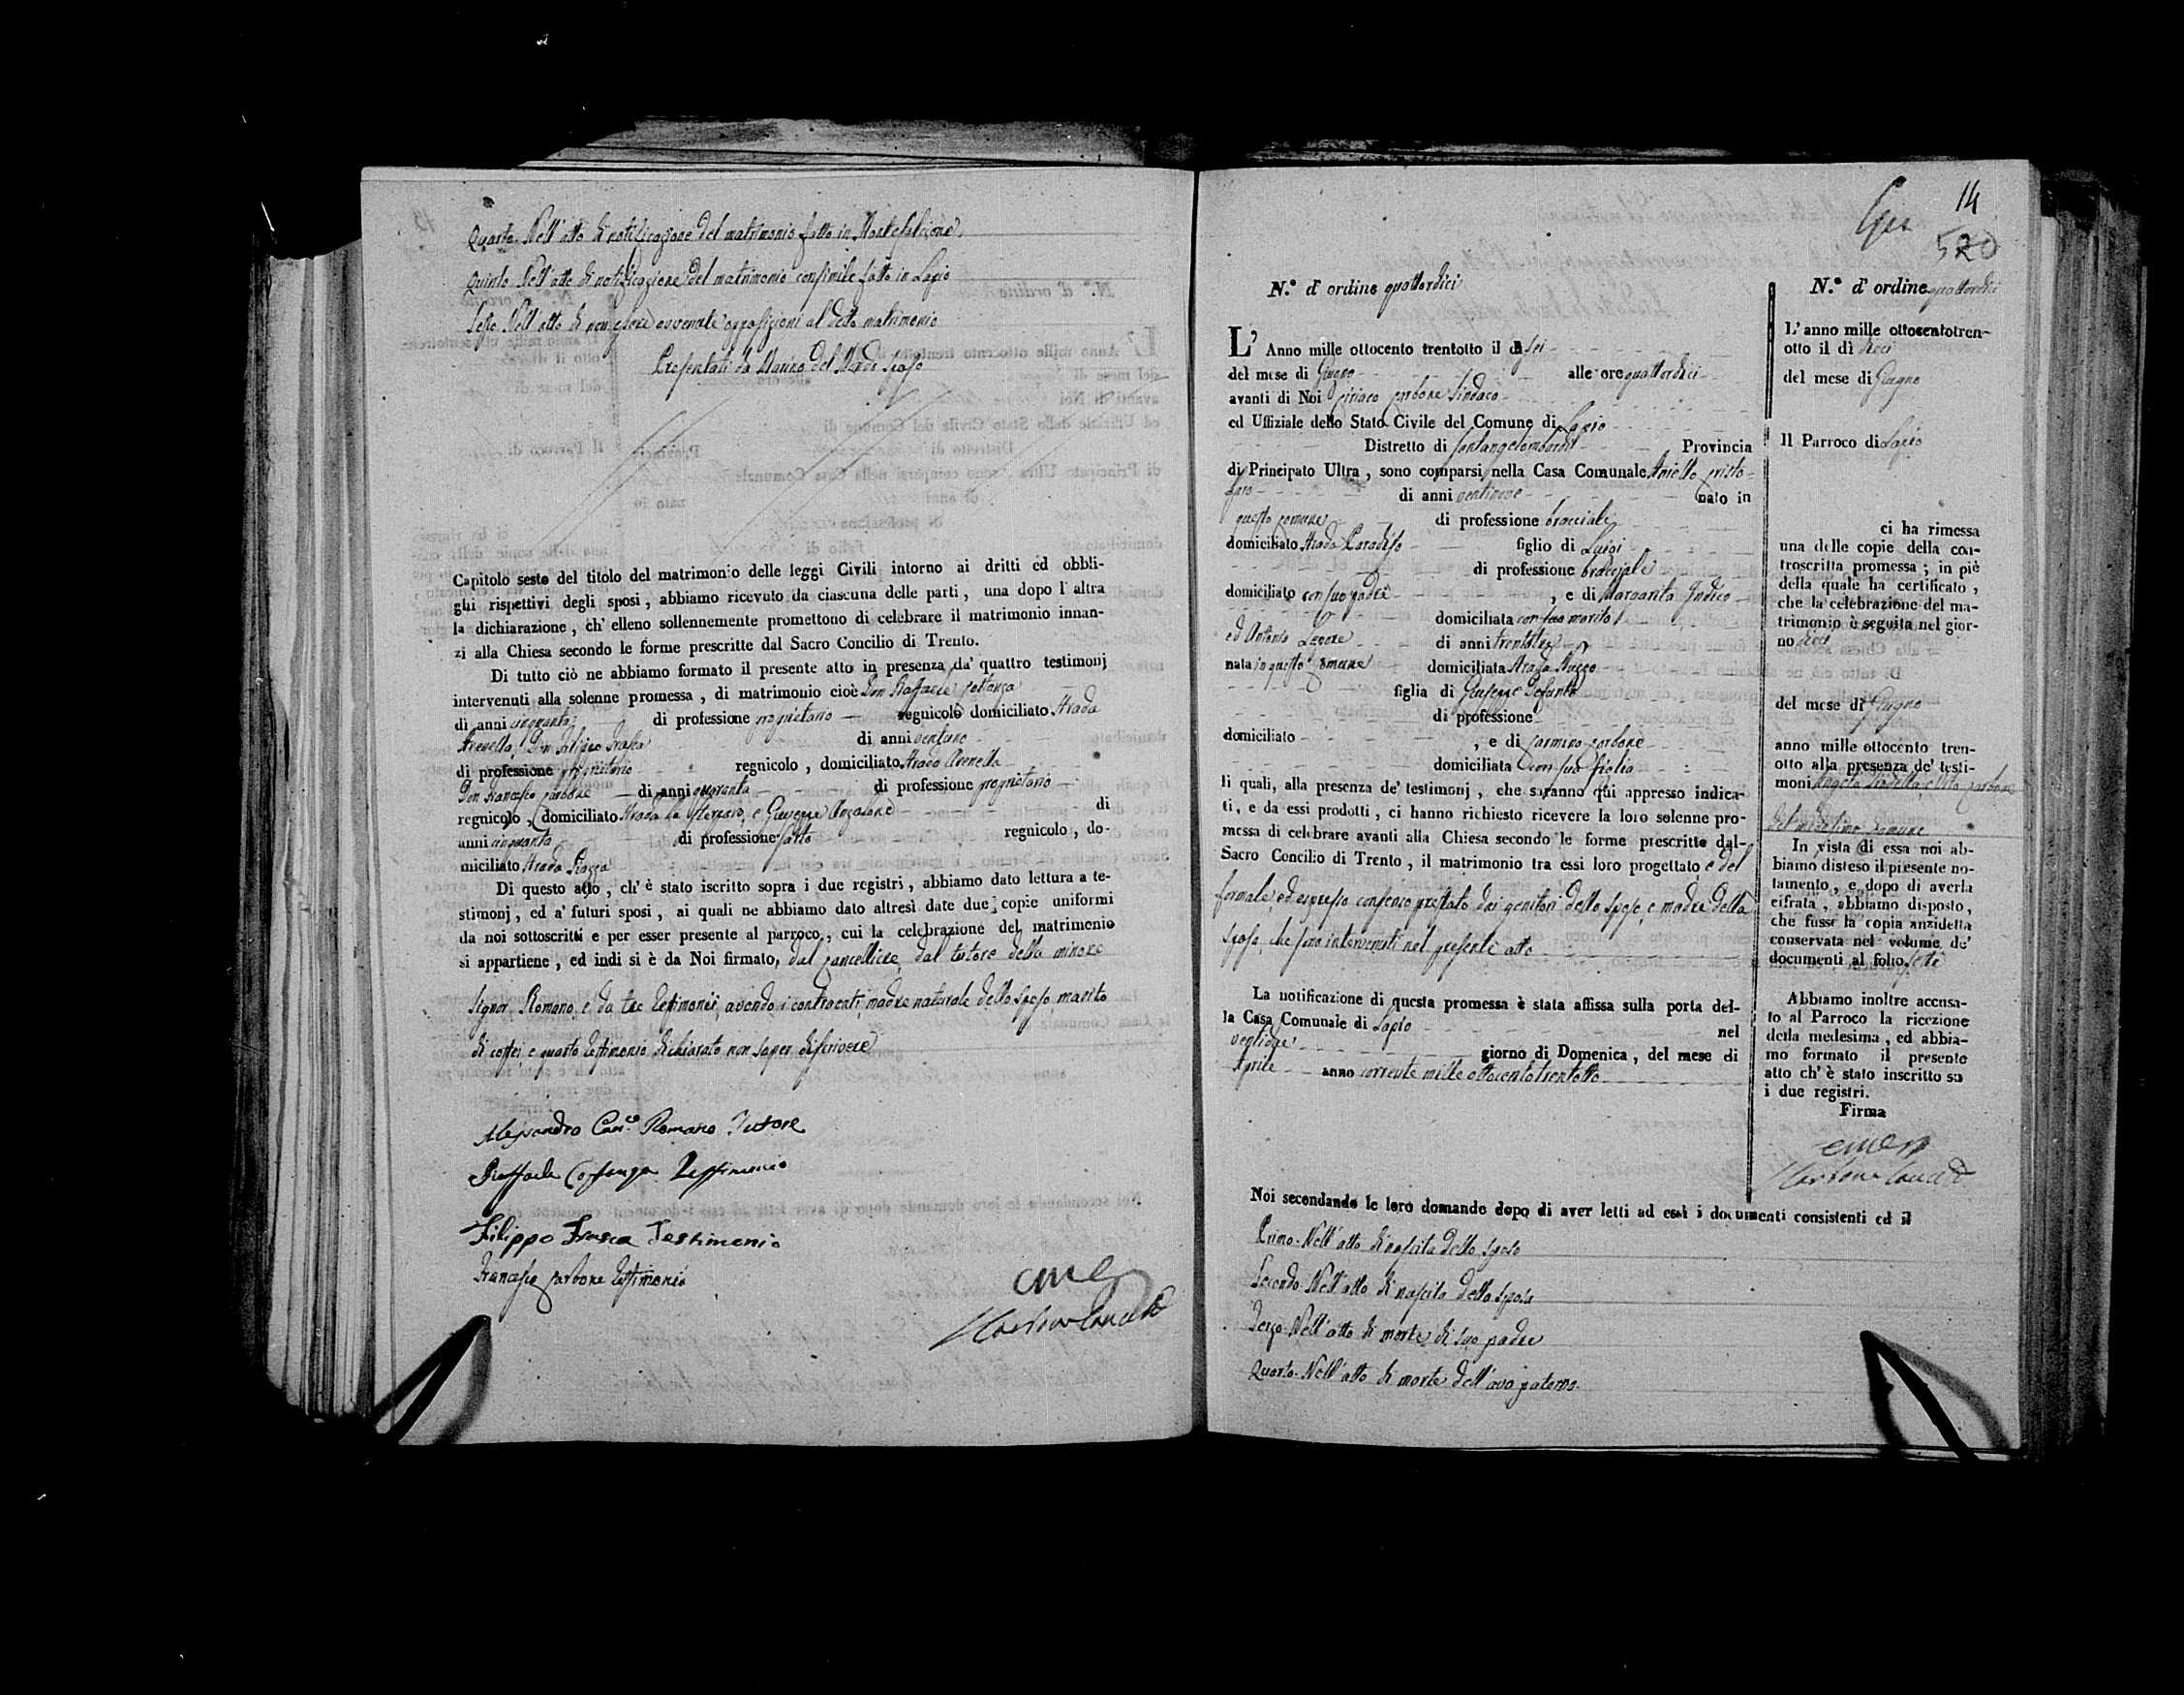 Quarto. Nell'atto di notificazione del matrimonio fatto in Montefalcione.
Quinto Nell'atto di notificazione del matrimonio consimile fatto in Lapio
Sesto Nell'atto di non essere avvenute opposizioni al detto matrimonio
Presentati da Marino del Mardi sposo
Capitolo sesto del titolo del matrimonio delle leggi Civili intorno ai dritti ed obbli-
ghi rispettivi degli sposi, abbiamo ricevuto da ciascuna delle parti, una dopo l'altra
la dichiarazione, ch'elleno sollennemente promettono di celebrare il matrimonio innan-
zi alla Chiesa secondo le forme prescritte dal Sacro Concilio di Trento.
Di tutto ciò ne abbiamo formato il presente atto in presenza da' quattro testimonj
intervenuti alla solenne promessa, di matrimonio cioè Don Raffaele Costanza
di anni cinquanta di professione proprietario regnicolo domiciliato Strada
Arenella, Don Filippo Frasca di anni ventuno
di professione proprietario regnicolo, domiciliato Strada Arenella
Don Francesco Carbone di anni quaranta di professione proprietario
regnicolo, domiciliato Strada e Giuseppe Anzalone di
anni cinquanta di professione sarto regnicolo, do-
miciliato Strada Piazza
Di questo atto, ch'è stato iscritto sopra i due registri, abbiamo dato lettura a te-
stimonj, ed a' futuri sposi, ai quali ne abbiamo dato altresì date due copie uniformi
da noi sottoscritti e per esser presente al parroco, cui la celebrazione del matrimonio
si appartiene, ed indi si è da Noi firmato, dal Cancelliere, dal tutore della minore
Signor Romano, e da tre testimonii, avendo i contraenti, madre naturale dello sposo, marito
di costei e quarto testimonio dichiarato non saper di scrivere
Alessandro Can.co Romano Tutore
Raffaele Costanza Testimonio
Filippo Frasca Testimonio
Francesco Carbone testimonio
14
520
N.° d'ordine quattordici
L'Anno mille ottocento trentotto il dì sei
del mese di Giugno alle ore quattordici
avanti di Noi Ciriaco Carbone Sindaco
ed Uffiziale dello Stato Civile del Comune di Lapio
Distretto di Santangelolombardi Provincia
di Principato Ultra, sono comparsi nella Casa Comunale Aniello Cristo-
faro di anni ventinove nato in
questo comune di professione bracciale
domiciliato Strada Paradiso figlio di Luigi
di professione bracciale
domiciliato con suo padre, e di Margarita Indico
domiciliata con suo marito
ed Antonia Lepore di anni trentatre
nata in questo comune domiciliata Strada
figlia di Giuseppe defunto
di professione
domiciliato, e di Carmina Carbone
domiciliata con sua figlia
li quali, alla presenza de' testimonj, che saranno qui appresso indica-
ti, e da essi prodotti, ci hanno richiesto ricevere la loro solenne pro-
messa di celebrare avanti alla Chiesa secondo le forme prescritte dal-
Sacro Concilio di Trento, il matrimonio tra essi loro progettato, e del
formale, ed espresso consenso prestato dai genitori dello sposo, e madre della
sposa, che sono intervenuti nel presente atto
La notificazione di questa promessa è stata affissa sulla porta del-
la Casa Comunale di Lapio nel
ventidue giorno di Domenica, del mese di
Aprile anno corrente mille ottocentotrentotto
N.° d'ordine quattordici
L'anno mille ottocentotren-
otto il dì dieci
del mese di Giugno
Il Parroco di Lapio
ci ha rimessa
una delle copie della con-
troscritta promessa; in piè
della quale ha certificato,
che la celebrazione del ma-
trimonio è seguita nel gior-
no dieci
del mese di Giugno
anno mille ottocento tren-
otto alla presenza de' testi-
moni Angelo e Vito Carbone
del medesimo comune
In vista di essa noi ab-
biamo disteso il presente no-
tamento, e dopo di averla
cifrata, abbiamo disposto,
che fusse la copia anzidetta
conservata nel volume de'
documenti al folio sette
Abbiamo inoltre accusa-
to al Parroco la ricezione
della medesima, ed abbia-
mo formato il presente
atto ch'è stato inscritto su
i due registri.
Firma
Noi secondando le loro domande dopo di aver letti ad essi i documenti consistenti ed il
Primo. Nell'atto di nascita dello sposo
Secondo. Nell'atto di nascita della sposa
Terzo. Nell'atto di morte di suo padre
Quarto. Nell'atto di morte dell'avo paterno.